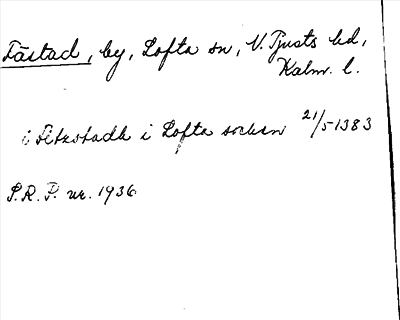 Fästad, by, Lofta sn, N. Tjusts hd,
Kalm. l.
i Fitzstadh i Lofta socken 21/5 1383
S.R.P. nr. 1936